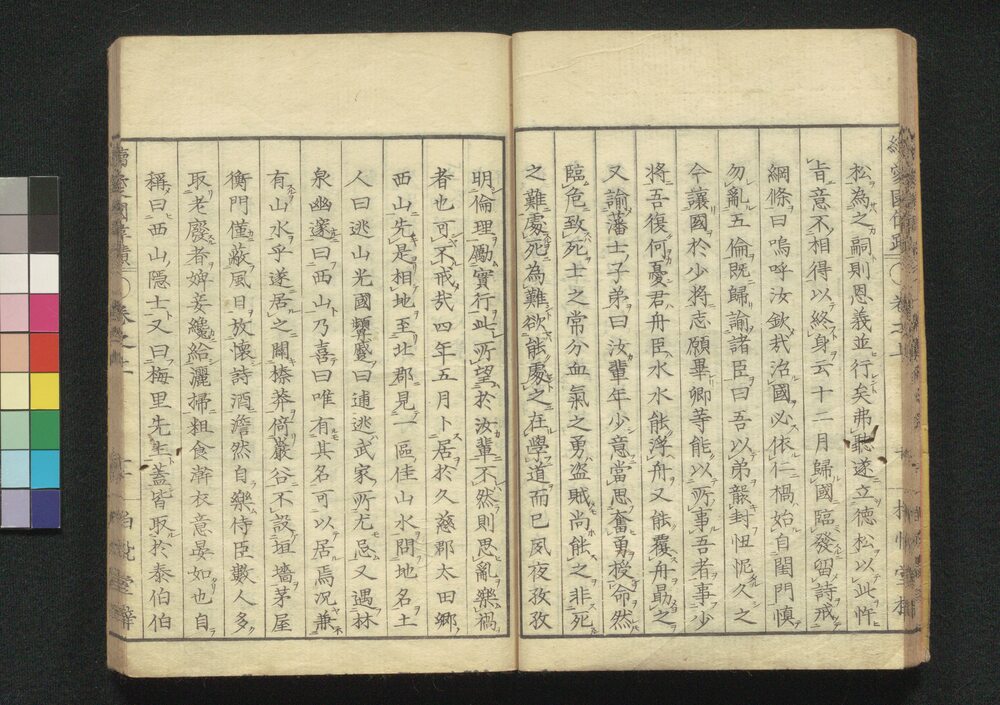 松為之嗣則恩義並行矣弗聽遂立徳松以此忤
旨意不相得以終身云十二月歸國臨發留詩戒
綱條曰嗚呼汝欽哉治國必依仁禍始自閨門慎
勿亂五倫既歸諭諸臣曰吾以弟襲封忸怩久之
今讓國於少將志願畢卿等能以所事吾者事少
將吾復何憂君舟臣水水能浮舟又能覆舟勗之
又諭藩士子弟曰汝輩年少意當思奮勇授命然
臨危致死士之常分血氣之勇盗賊尚能之非死
之難處死為難欲能處之在學道而已夙夜孜孜
明倫理勵實行此所望於汝輩不然則思亂樂禍
者也可不戒哉四年五月卜居於久慈郡太田郷
西山先是相地至此郡見一區佳山水問地名土
人曰逃山光國顰蹙曰逋逃武家所尤忌又遇林
泉幽邃曰西山乃喜曰唯有其名可以居焉况兼
有山水乎遂居之闢榛莽倚巖谷不設垣墻茅屋
衡門僅蔽風日放懷詩酒澹然自樂侍臣數人多
取老廢者婢妾纔給灑掃粗食澣衣意晏如也自
稱曰西山隱士又曰梅里先生蓋皆取於泰伯伯